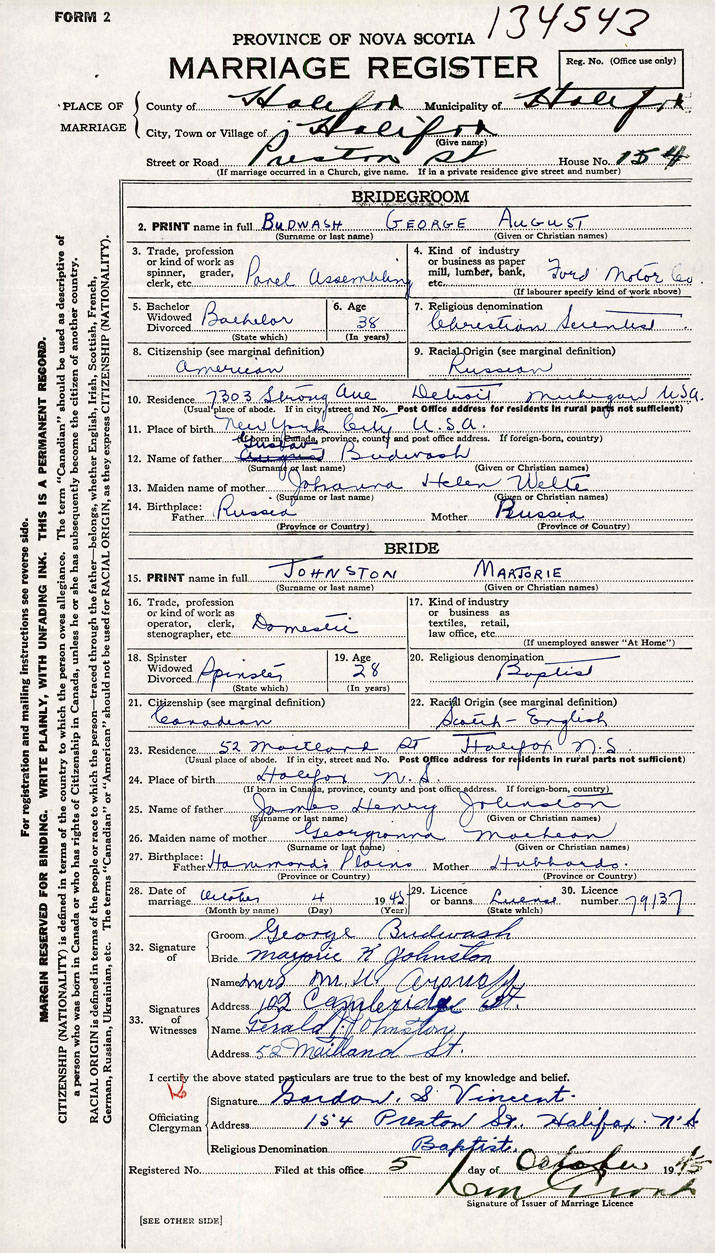 FORM 2
134543
PROVINCE OF NOVA SCOTIA
MARRIAGE REGISTER
Reg. No. (Office use only)
PLACE OF MARRIAGE
County of Halifax Municipality of Halifax
City, Town or Village of Halifax
(Give name)
Street or Road Preston St House No. 154
(If marriage occurred in a Church, give name. If in a private residence give street and number)
BRIDEGROOM
2. PRINT name in full BUDWASH GEORGE AUGUST
(Surname or last name) (Given or Christian names)
3. Trade, profession or kind of work as spinner, grader, clerk, etc. Panel Assembling
4. Kind of industry or business as paper mill, lumber, bank, etc. Ford Motor Co.
(If labourer specify kind of work above)
5. Bachelor Widowed Divorced Bachelor
(State which)
6. Age 38
(In years)
7. Religious denomination Christian Scientist
8. Citizenship (see marginal definition) American
9. Racial Origin (see marginal definition) Russian
10. Residence 7303 Strong Ave Detroit Michigan USA.
(Usual place of abode. If in city, street and No. Post Office address for residents in rural parts not sufficient)
11. Place of birth New York City U.S.A.
(If born in Canada, province, county and post office address. If foreign-born, country)
Gustav
12. Name of father August Budwash
(Surname or last name) (Given or Christian names)
13. Maiden name of mother Johanna Helen Welte
(Surname or last name) (Given or Christian names)
14. Birthplace: Father Russia Mother Russia
(Province or Country) (Province or Country)
BRIDE
15. PRINT name in full JOHNSTON MARJORIE
(Surname or last name) (Given or Christian names)
16. Trade, profession or kind of work as operator, clerk, stenographer, etc. Domestic
17. Kind of industry or business as textiles, retail, law office, etc.
(If unemployed answer "At Home")
18. Spinster Widowed Divorced Spinster
(State which)
19. Age 28
(In years)
20. Religious denomination Baptist
21. Citizenship (see marginal definition) Canadian
22. Racial Origin (see marginal definition) Scotch-English
23. Residence 52 Maitland St Halifax N.S.
(Usual place of abode. If in city, street and No. Post Office address for residents in rural parts not sufficient)
24. Place of birth Halifax N.S.
(If born in Canada, province, county and post office address. If foreign-born, country)
25. Name of father James Henry Johnston
(Surname or last name) (Given or Christian names)
26. Maiden name of mother Georgianna
(Surname or last name) (Given or Christian names)
27. Birthplace: Father Hammonds Plains Mother Hubbards.
(Province or Country) (Province or Country)
28. Date of marriage October 4 1945
(Month by name) (Day) (Year)
29. Licence or banns License
(State which)
30. Licence number 79137
32. Signature of
Groom George Budwash
Bride Marjorie K Johnston
33. Signatures of Witnesses
Name Mrs M.U.
Address 102 Cambridge St.
Name Gerald J. Johnston
Address 52 Maitland St.
I certify the above stated particulars are true to the best of my knowledge and belief.
Officiating Clergyman
Signature Gordon. S Vincent.
Address 154 Preston St. Halifax. N.S
Religious Denomination Baptist.
Registered No. Filed at this office 5 day of October 1945
Signature of Issuer of Marriage Licence
[SEE OTHER SIDE]
For registration and mailing instructions see reverse side.
MARGIN RESERVED FOR BINDING. WRITE PLAINLY, WITH UNFADING INK. THIS IS A PERMANENT RECORD.
CITIZENSHIP (NATIONALITY) is defined in terms of the country to which the person owes allegiance. The term "Canadian" should be used as descriptive of
a person who was born in Canada or who has rights of Citizenship in Canada, unless he or she has subsequently become the citizen of another country.
RACIAL ORIGIN is defined in terms of the people or race to which the person—traced through the father—belongs, whether English, Irish, Scottish, French,
German, Russian, Ukrainian, etc. The terms "Canadian" or "American" should not be used for RACIAL ORIGIN, as they express CITIZENSHIP (NATIONALITY).